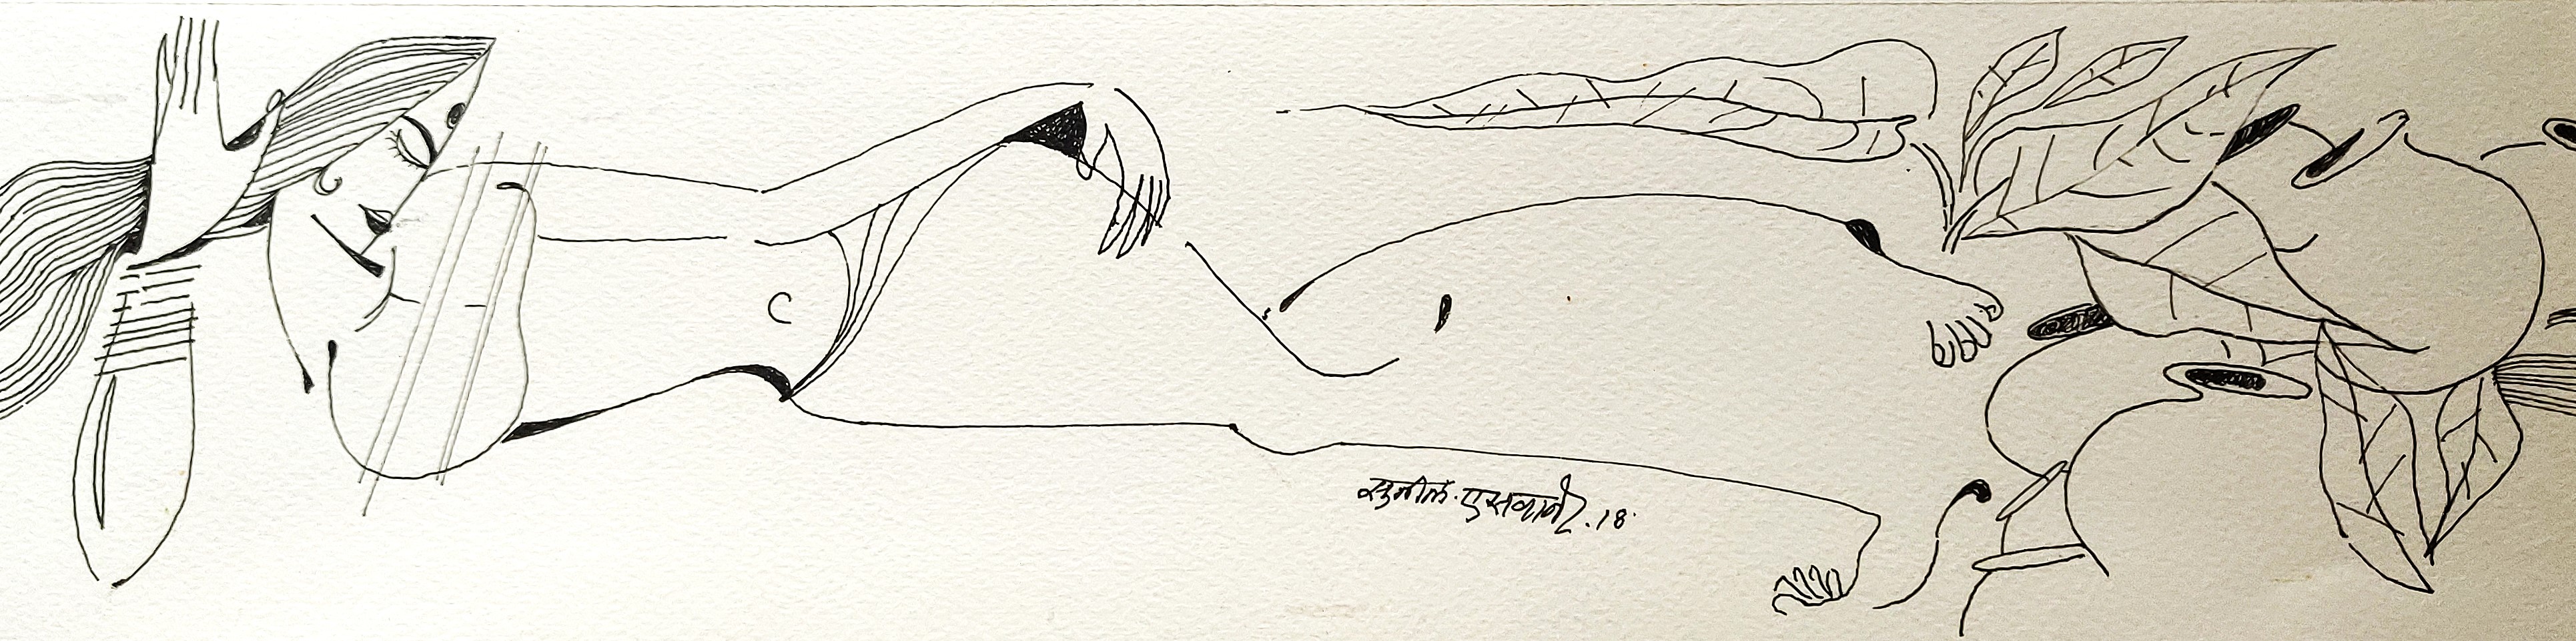 सुनील. एसवाने. 18